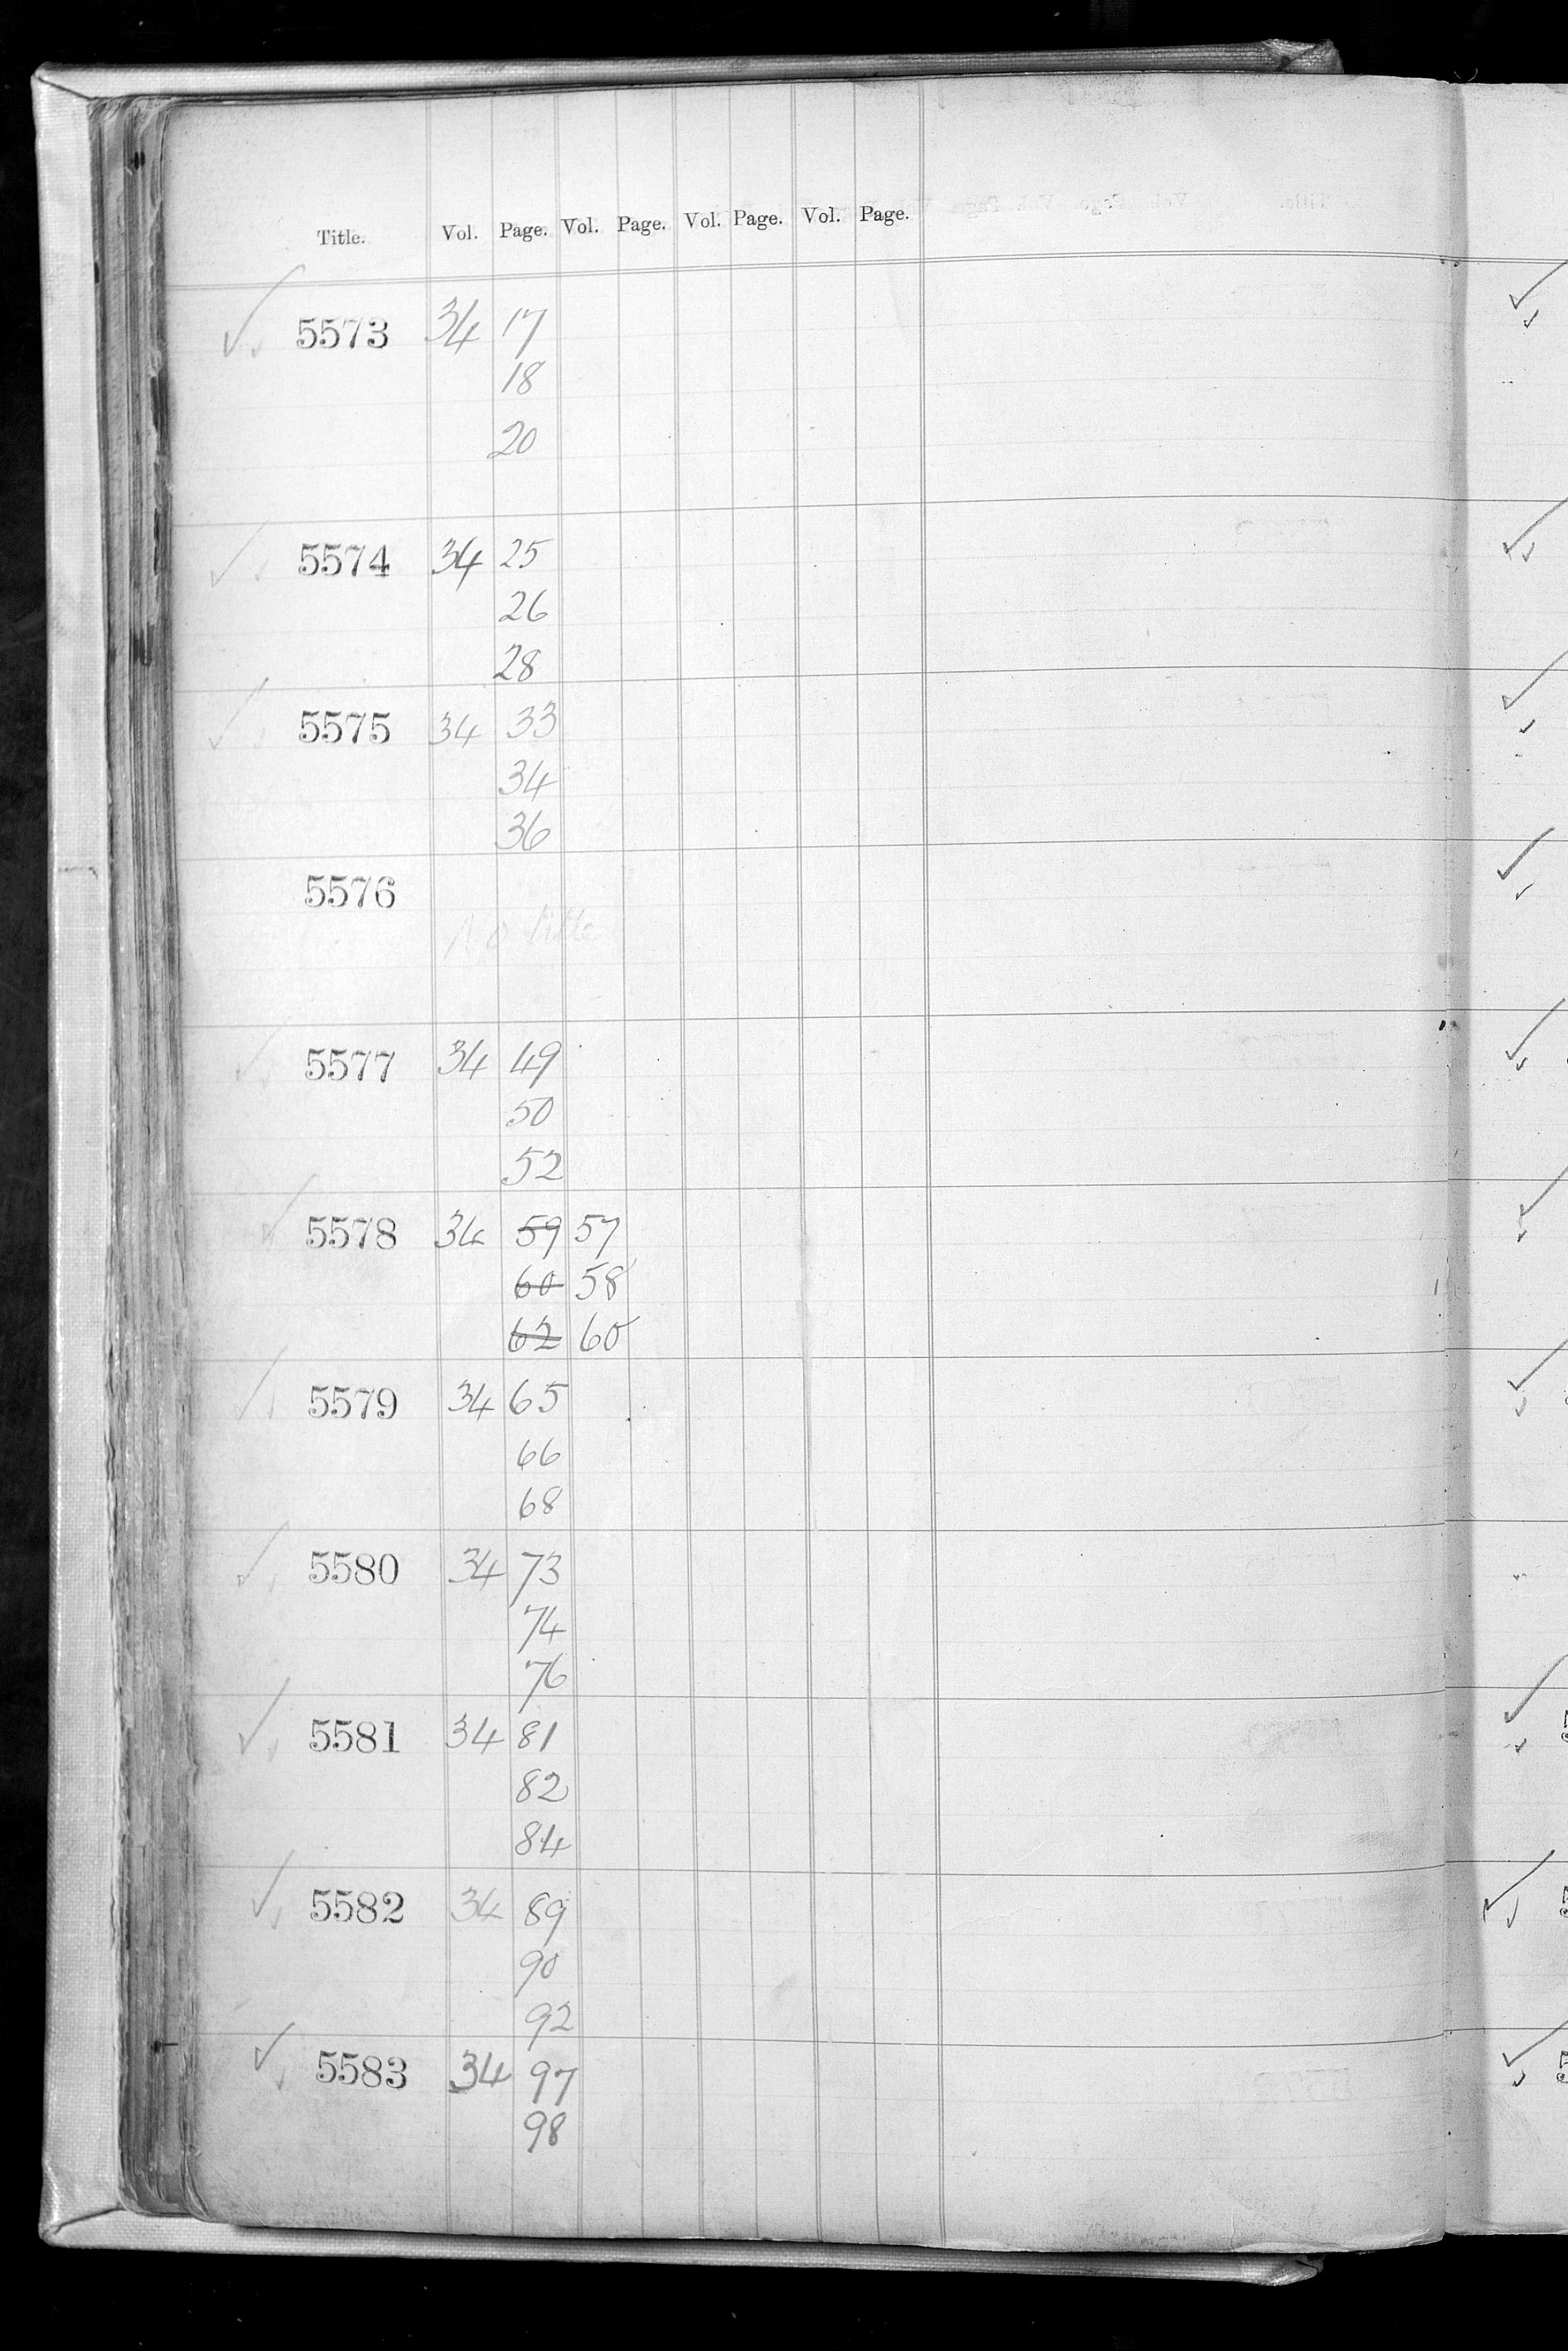 Title. Vol. Page. Vol. Page. Vol. Page. Vol. Page.
5573 34 17
18
20
5574 34 25
26
28
5575 34 33
34
36
5576
No title
5577 34 49
50
52
5578 34 59 57
60 58
62 60
5579 34 65
66
68
5580 34 73
74
76
5581 34 81
82
84
5582 34 89
90
92
5583 34 97
98